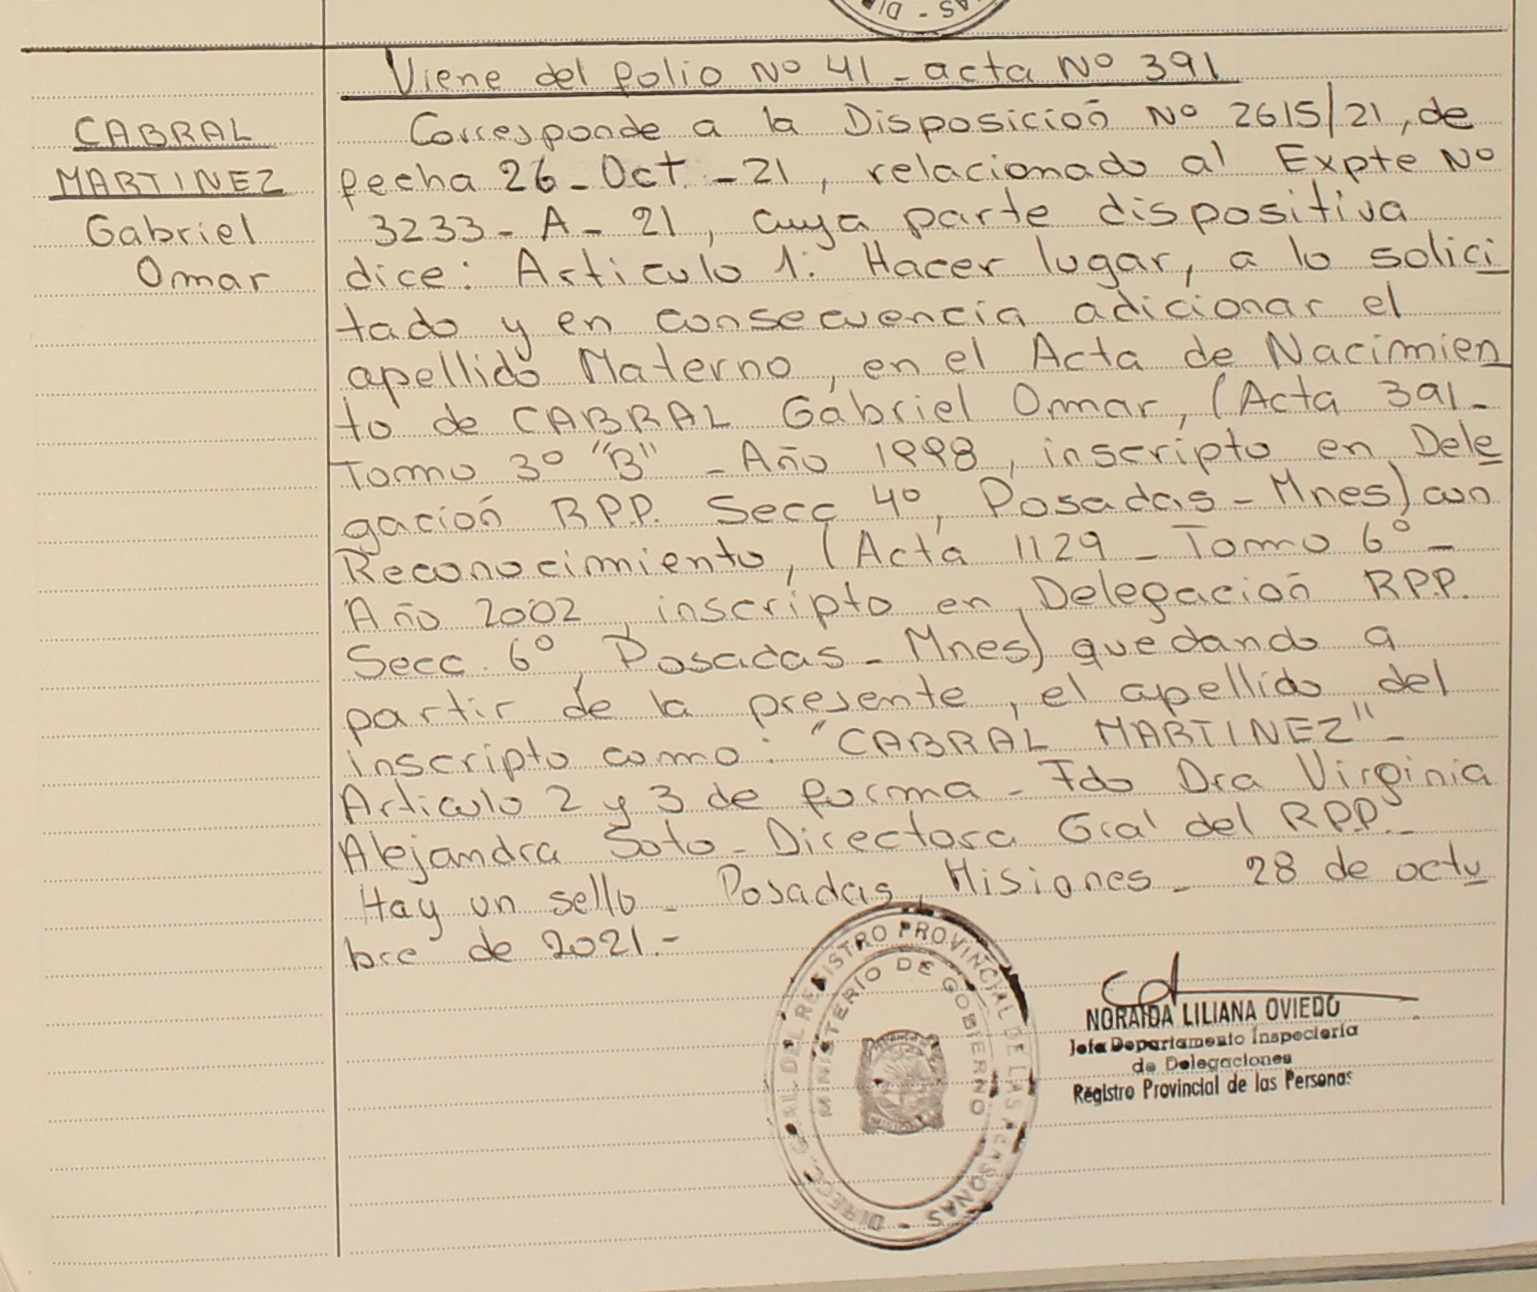 Viene del folio Nº 41 - acta Nº 391
CABRAL
MARTINEZ
Gabriel
Omar
Corresponde a la Disposición Nº 2615/21, de
fecha 26 - Oct. - 21, relacionado al Expte Nº
3233 - A - 21, cuya parte dispositiva
dice: Articulo 1: Hacer lugar, a lo solici
tado y en consecuencia adicionar el
apellido Materno, en el Acta de Nacimien
to de CABRAL Gabriel Omar, (Acta 391 -
Tomo 3º "B" - Año 1998, inscripto en Dele
gación RPP. Secc 4º, Posadas - Mnes) con
Reconocimiento, (Acta 1129 - Tomo 6º -
Año 2002, inscripto en Delegación RPP.
Secc. 6º, Posadas - Mnes) quedando a
partir de la presente, el apellido del
inscripto como: "CABRAL MARTINEZ" -
Articulo 2 y 3 de forma - Fdo Dra Virginia
Alejandra Soto - Directora Gral del RPP. -
Hay un sello - Posadas, Misiones - 28 de octu
bre de 2021.-
DIRECC. GRAL. DEL REGISTRO PROVINCIAL DE LAS PERSONAS -
MINISTERIO DE GOBIERNO
NORAIDA LILIANA OVIEDO
Jefa Departamento Inspectoría
de Delegaciones
Registro Provincial de las Personas